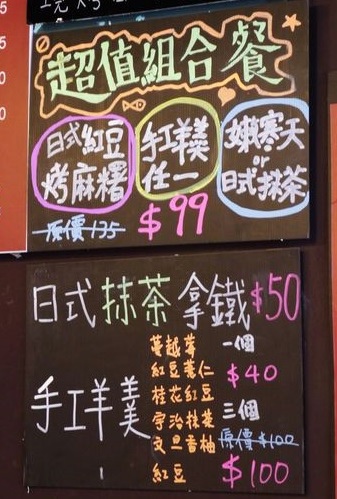 超值組合餐
日式紅豆
烤麻糬
手工羊羹
任一
嫩寒天
or
日式抹茶
原價135
$99
日式抹茶拿鐵$50
手工羊羹
蔓越莓
紅豆薏仁
桂花紅豆
宇治抹茶
文旦香柚
紅豆
一個
$40
三個
原價$100
$100